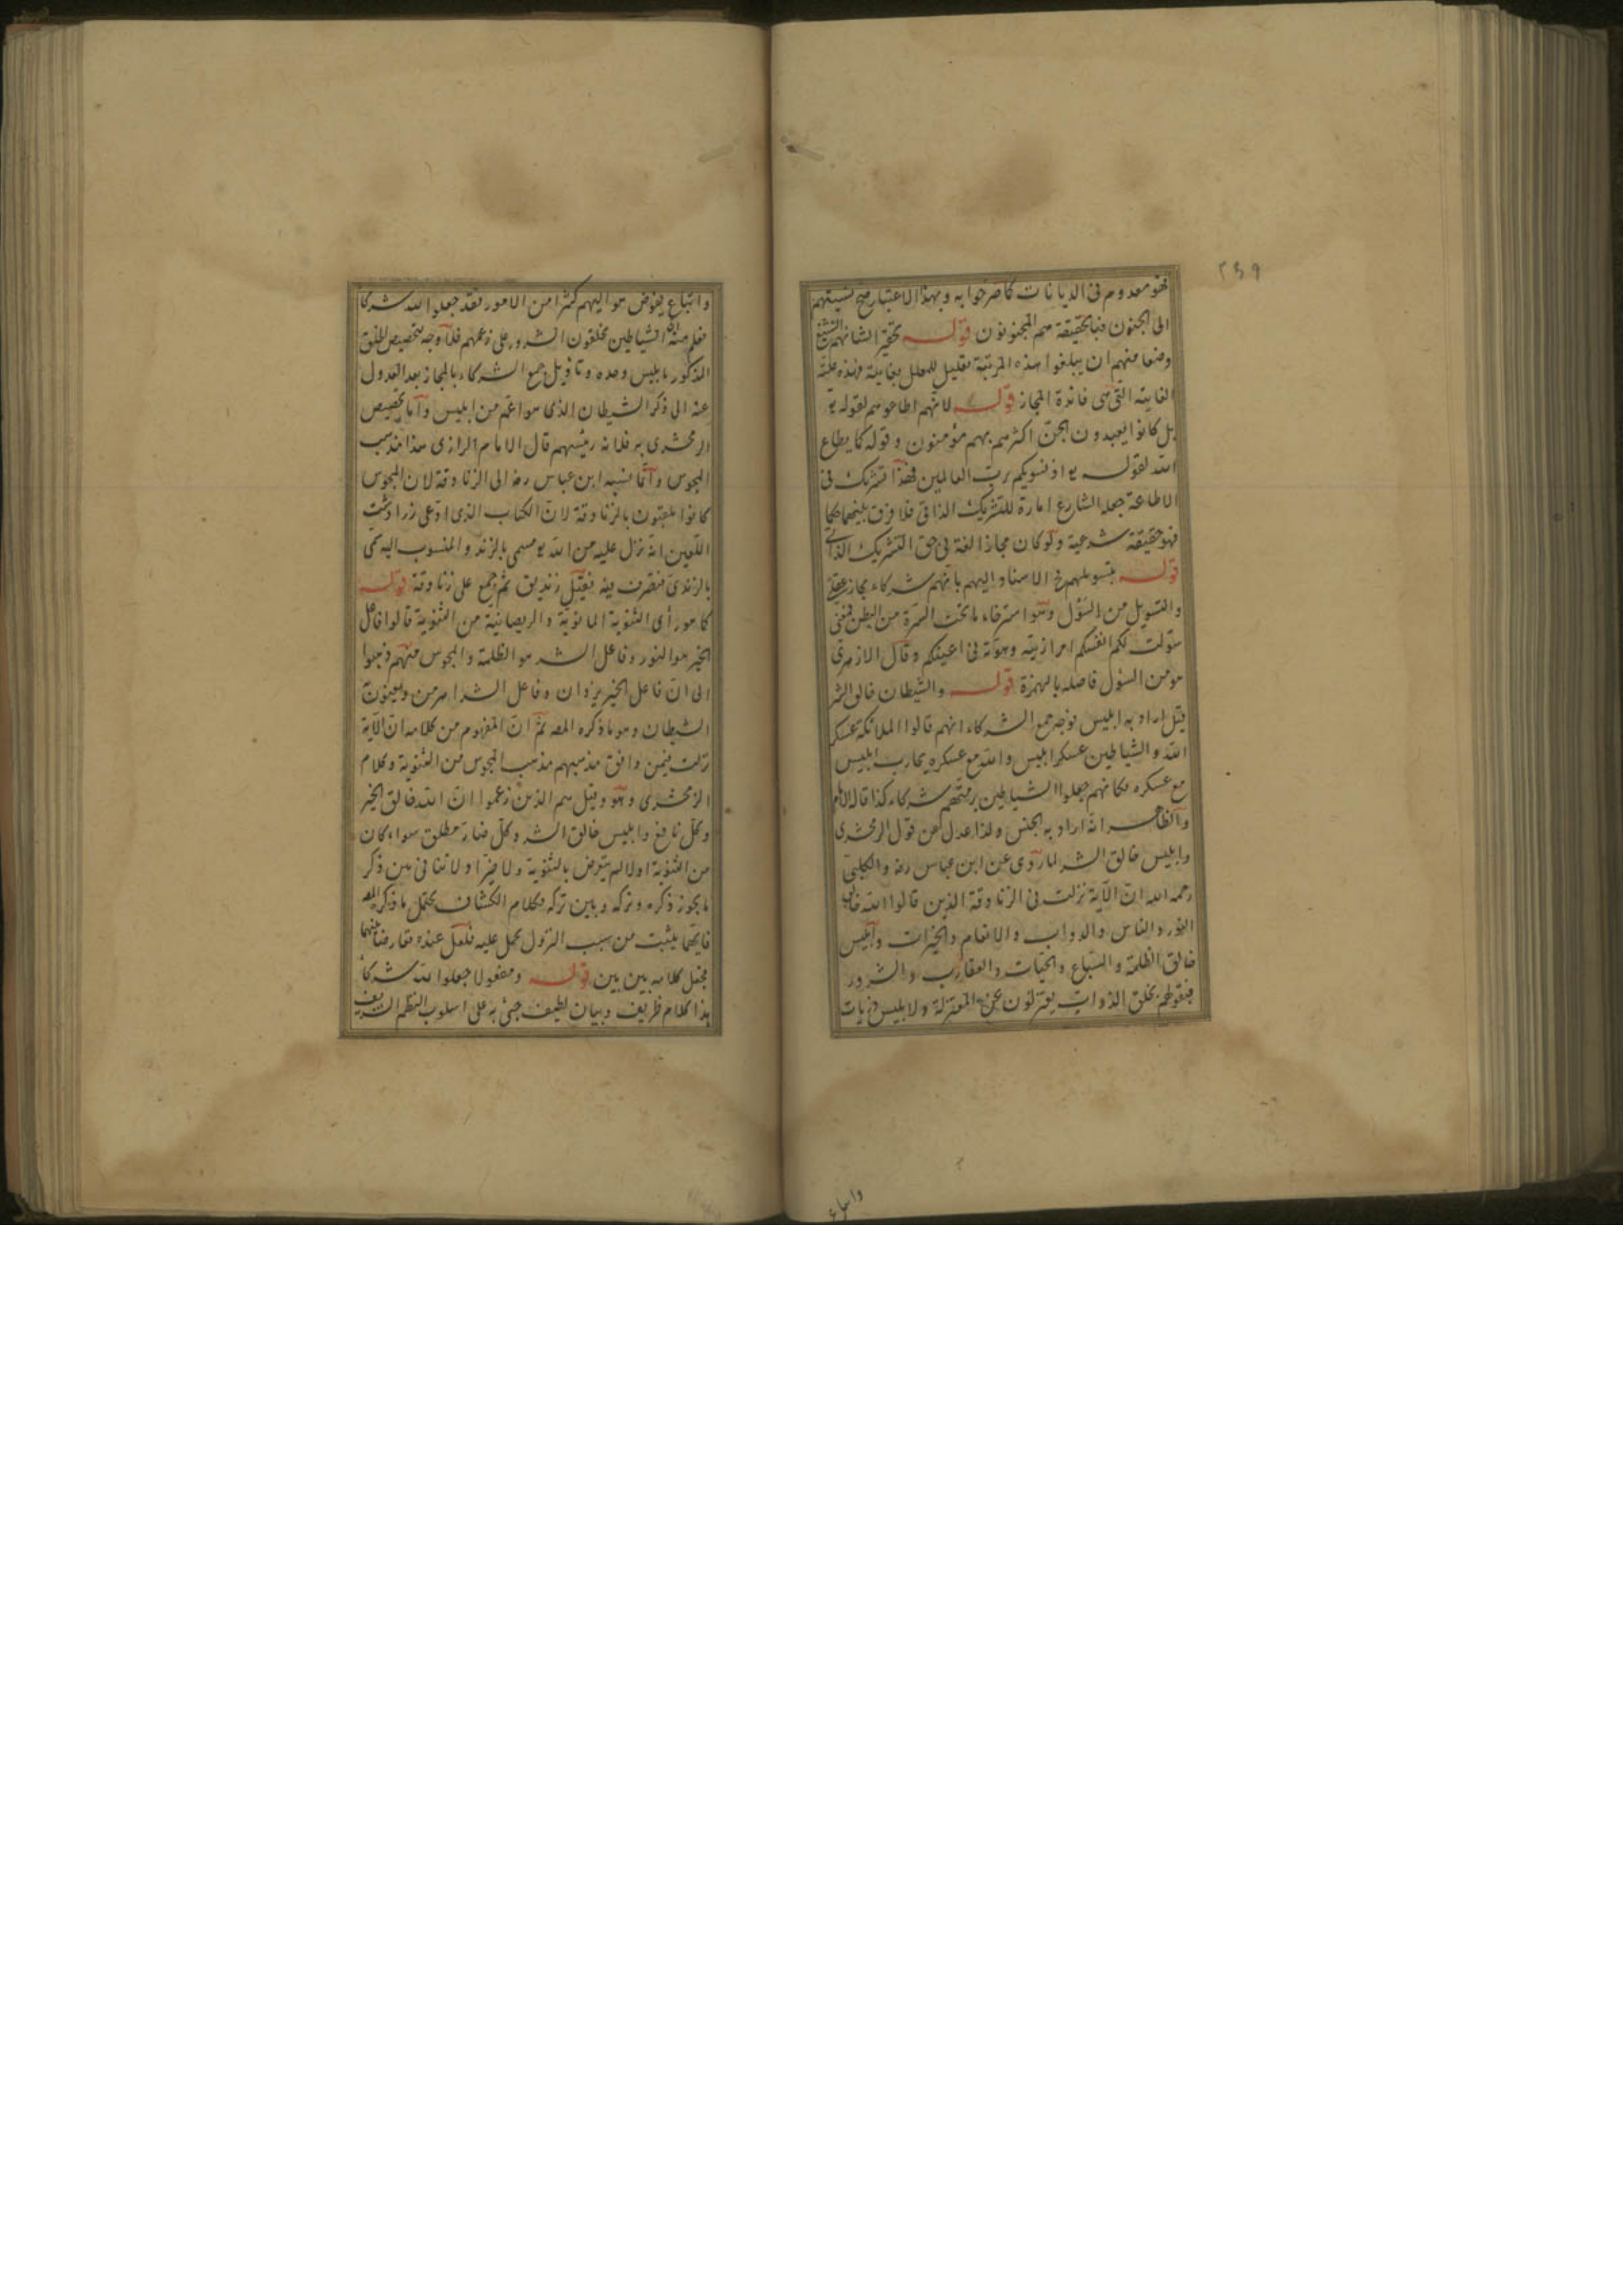 ٢٤٩
فهو معدوم فى الديانات كما صرحوا به وبهذا الاعتبار صح نسبتهم
الى الجنون فبالحقيقة هم المجنونون قوله تحقيرا لشانهم
وضعا منهم ان يبلغوا هذه المرتبة تعليل للمعلل بغايته فهذه علته
الغايته التى هى فائدة المجاز قوله لانهم اطاعوهم لقوله تع
بل كانوا يعبدون الجن اكثرهم بهم مؤمنون وقوله كما يطاع
الله لقوله تع اذ نسويكم برب العالمين فهذا تشريك فى
الاطاعة جعله الشارع امارة للتشريك الذاتى فلا فرق بينهما حكما
فهو حقيقة شرعية ولو كان مجازا لغة فى حق التشريك الذاتى
قوله بتسويلهم الاسناد اليهم بانهم شركاء مجاز عقلى
والتسويل من السؤل وهو استرخاء ما تحت السرة من البطن فمعنى
سولت لكم انفسكم امرا زينته وهونه فى اعينكم وقال الازهرى
هو من السؤل فاصله بالهمزة قوله والشيطان خالق الشر
قيل اراد به ابليس توجه جمع الشركاء انهم قالوا الملائكة عسكر
الله والشياطين عسكر ابليس والله مع عسكره يحارب ابليس
مع عسكره فكانهم جعلوا الشياطين برمتهم شركاء كذا قاله الامام
والظاهر انه اراد به الجنس ولذا عدل عن قول الزمخشرى
وابليس خالق الشر لما روى عن ابن عباس رضه والكلبى
رحمه الله ان الآية نزلت فى الزنادقة الذين قالوا الله خالق
النور والناس والدواب والانعام والخيرات وابليس
خالق الظلمة والسباع والحيات والعقارب والشرور
فبقولهم بخلق الذوات يعتزلون عن المعتزلة ولابليس ذريات
واتباع
واتباع يفوض هو اليهم كثيرا من الامور فقد جعلوا لله شركا
فعلم منه ان الشياطين يخلقون الشرور على زعمهم فلا وجه لتخصيص الخلق
المذكور بابليس وحده وتاويل جمع الشركاء بالمجاز بعد العدول
عنه الى ذكر الشيطان الذى هو اعم من ابليس واما تخصيص
الزمخشرى به فلانه رئيسهم قال الامام الرازى هذا مذهب
المجوس وانما نسبه ابن عباس رضه الى الزنادقة لان المجوس
كانوا يلقبون بالزنادقة لان الكتاب الذى ادعى زرادشت
اللعين انه نزل عليه من الله تع مسمى بالزند والمنسوب اليه يسمى
بالزندى فتصرف فيه فقيل زنديق ثم جمع على زنادقة قوله
كما هو رأى الثنوية المانوية والديصانية من الثنوية قالوا فاعل
الخير هو النور وفاعل الشر هو الظلمة والمجوس منهم ذهبوا
الى ان فاعل الخير يزدان وفاعل الشر اهرمن ويعنون
الشيطان وهو ما ذكره المصه ثم ان المفهوم من كلامه ان الآية
نزلت فيمن وافق مذهبهم مذهب المجوس من الثنوية وكلام
الزمخشرى وهو وقيل هم الذين زعموا ان الله خالق الخير
وكل نافع وابليس خالق الشر وكل ضار مطلق سواء كان
من الثنوية او لا لم يتعرض بالثنوية ولا ضير اذ لا تنافى بين ذكر
ما يجوز ذكره وتركه وبين تركه فكلام الكشاف يحتمل ما ذكره المصه
فايهما يثبت من سبب النزول يحمل عليه فلعل عنده تعارضا بينهما
فجعل كلامه بين بين قوله ومفعولا جعلوا لله شركا
هذا كلام ظريف وبيان لطيف جئ به على اسلوب النظم الشريف